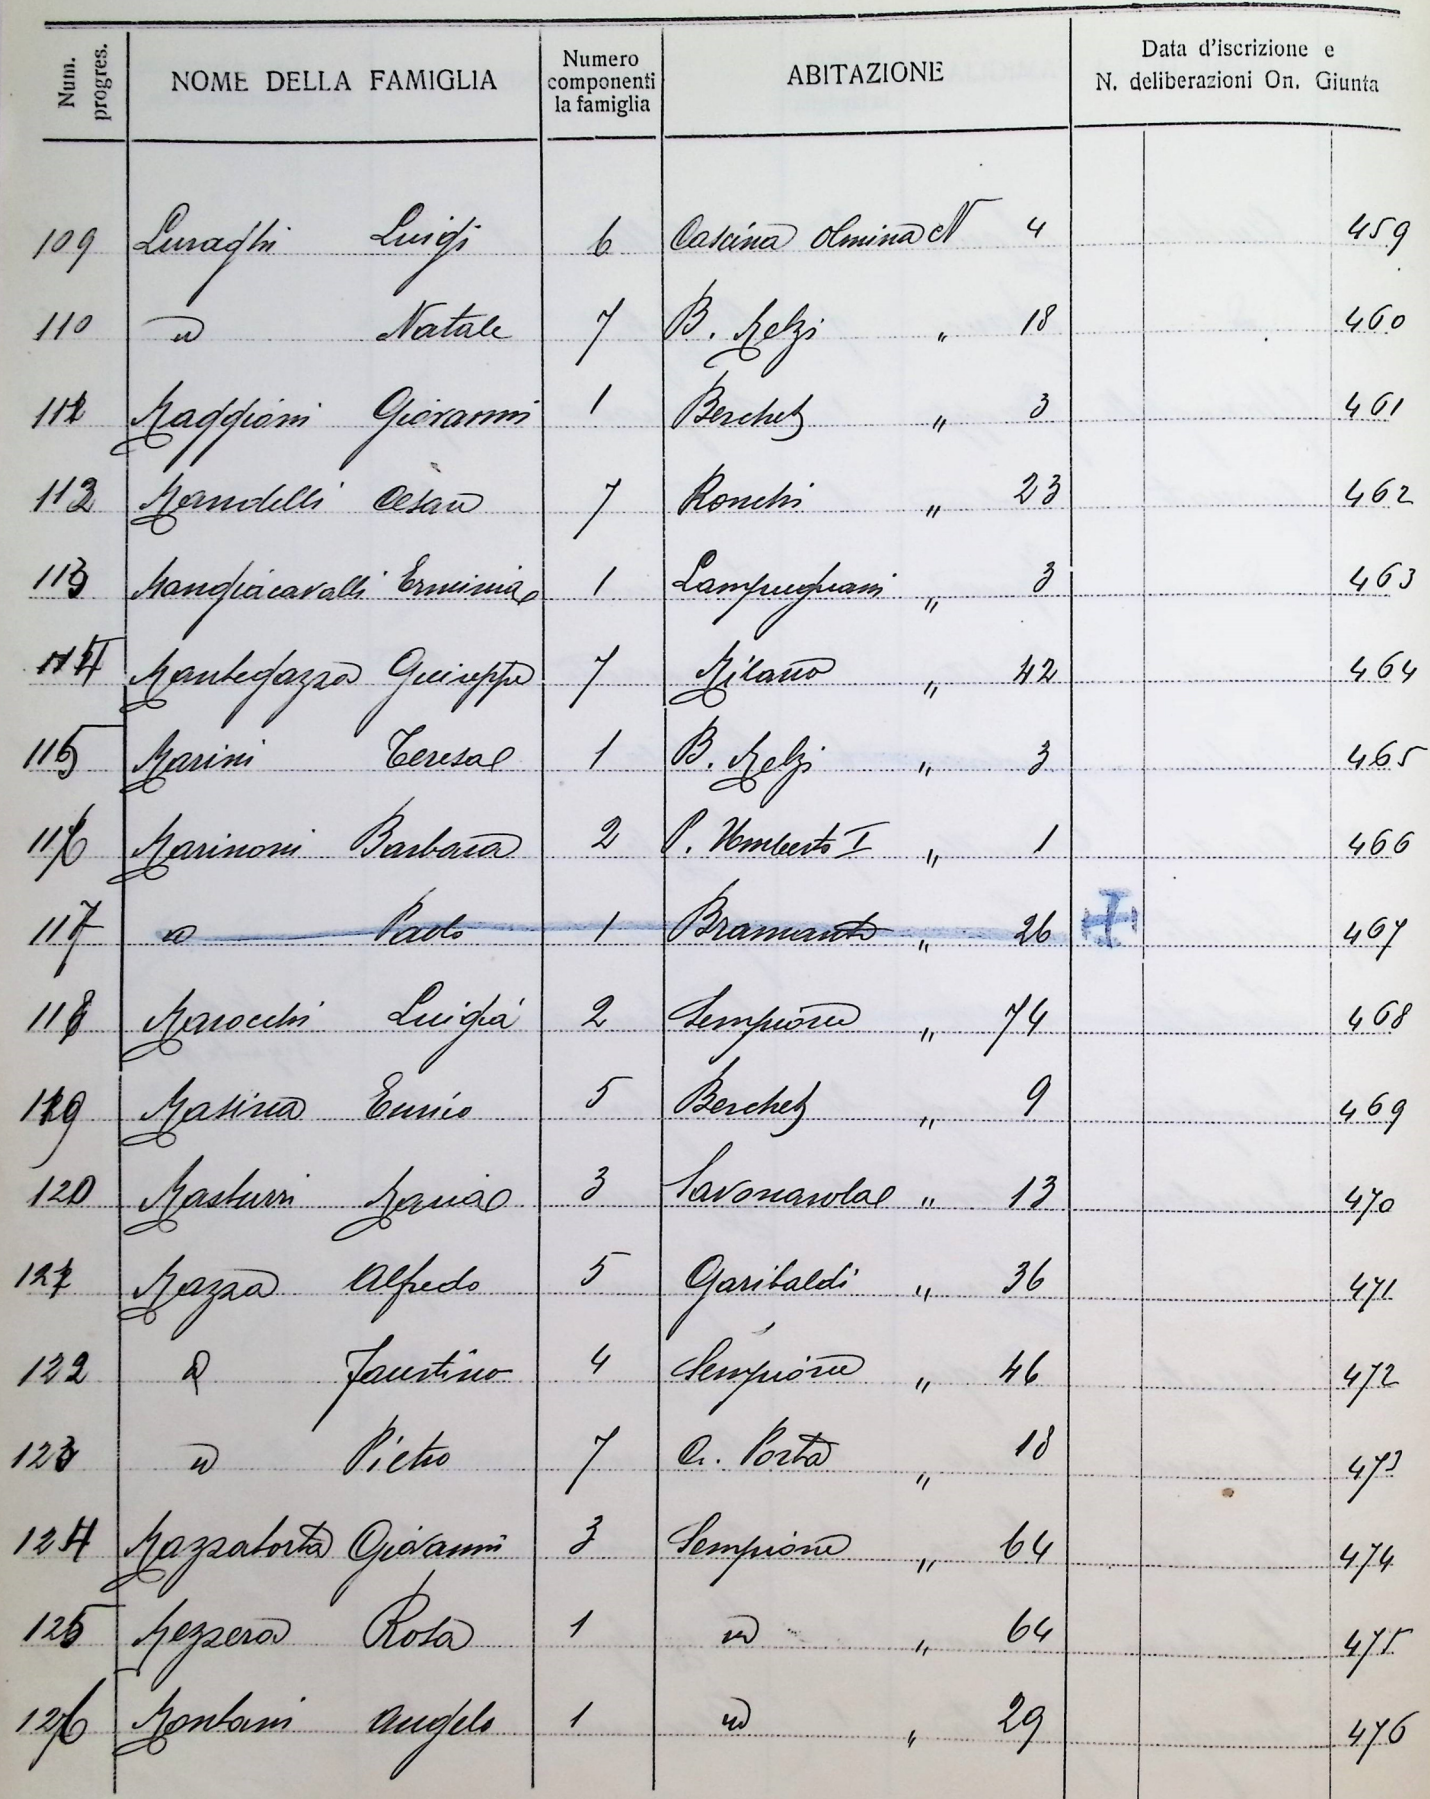 Num. progres. NOME DELLA FAMIGLIA Numero componenti la famiglia ABITAZIONE Data d'iscrizione e N. deliberazioni On. Giunta
109 Luraghi Luigi 6 Cascina Olmina N 4 459
110 " Natale 7 B. Melzi " 18 460
Maggioni Giovanni 1 Berchet " 3 461
Mandelli Cesare 7 Ronchi " 23 462
113 Mangiacavalli Erminia 1 Lampugnani " 3 463
114 Mantegazza Giuseppe 7 Milano " 42 464
115 Marini Teresa 1 B. Melzi " 3 465
116 Marinoni Barbara 2 P. Umberto I " 1 466
117 " Paolo 1 Bramante " 26 467
118 Marocchi Luigia 2 Sempione " 74 468
119 Masina Ennio 5 Berchet " 9 469
120 Masturzi Maria 3 Savonarola " 13 470
121 Mazza Alfredo 5 Garibaldi " 36 471
122 " Faustino 4 Sempione " 46 472
123 " Pietro 7 C. Porta " 18 473
124 Mazzatorta Giovanni 3 Sempione " 64 474
125 Mezzera Rosa 1 " " 64 475
126 Montani Angelo 1 " " 29 476